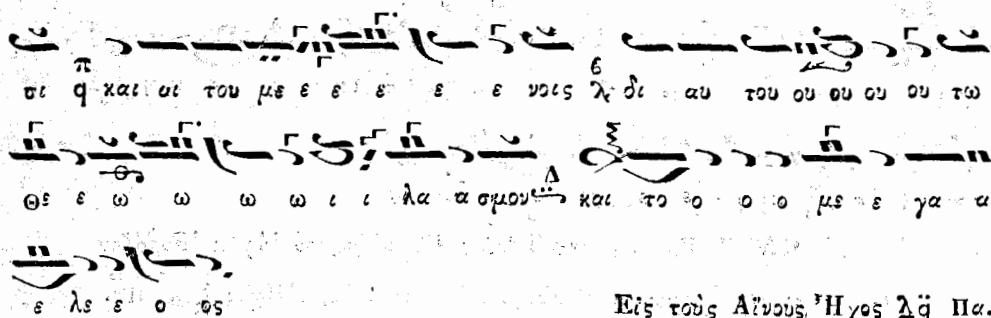 σι π q και αι του με ε ε ε ε ε νοις ϐ λ δι αυ του ου ου ου ου τω
Θε ε ω ω ω ω ι ι λα α σμου Δ και το ο ο ο με ε γα α
ε λε ε ο ος
Εἰς τοὺς Αἴνους, Ἦχος λ q̈ Πα.